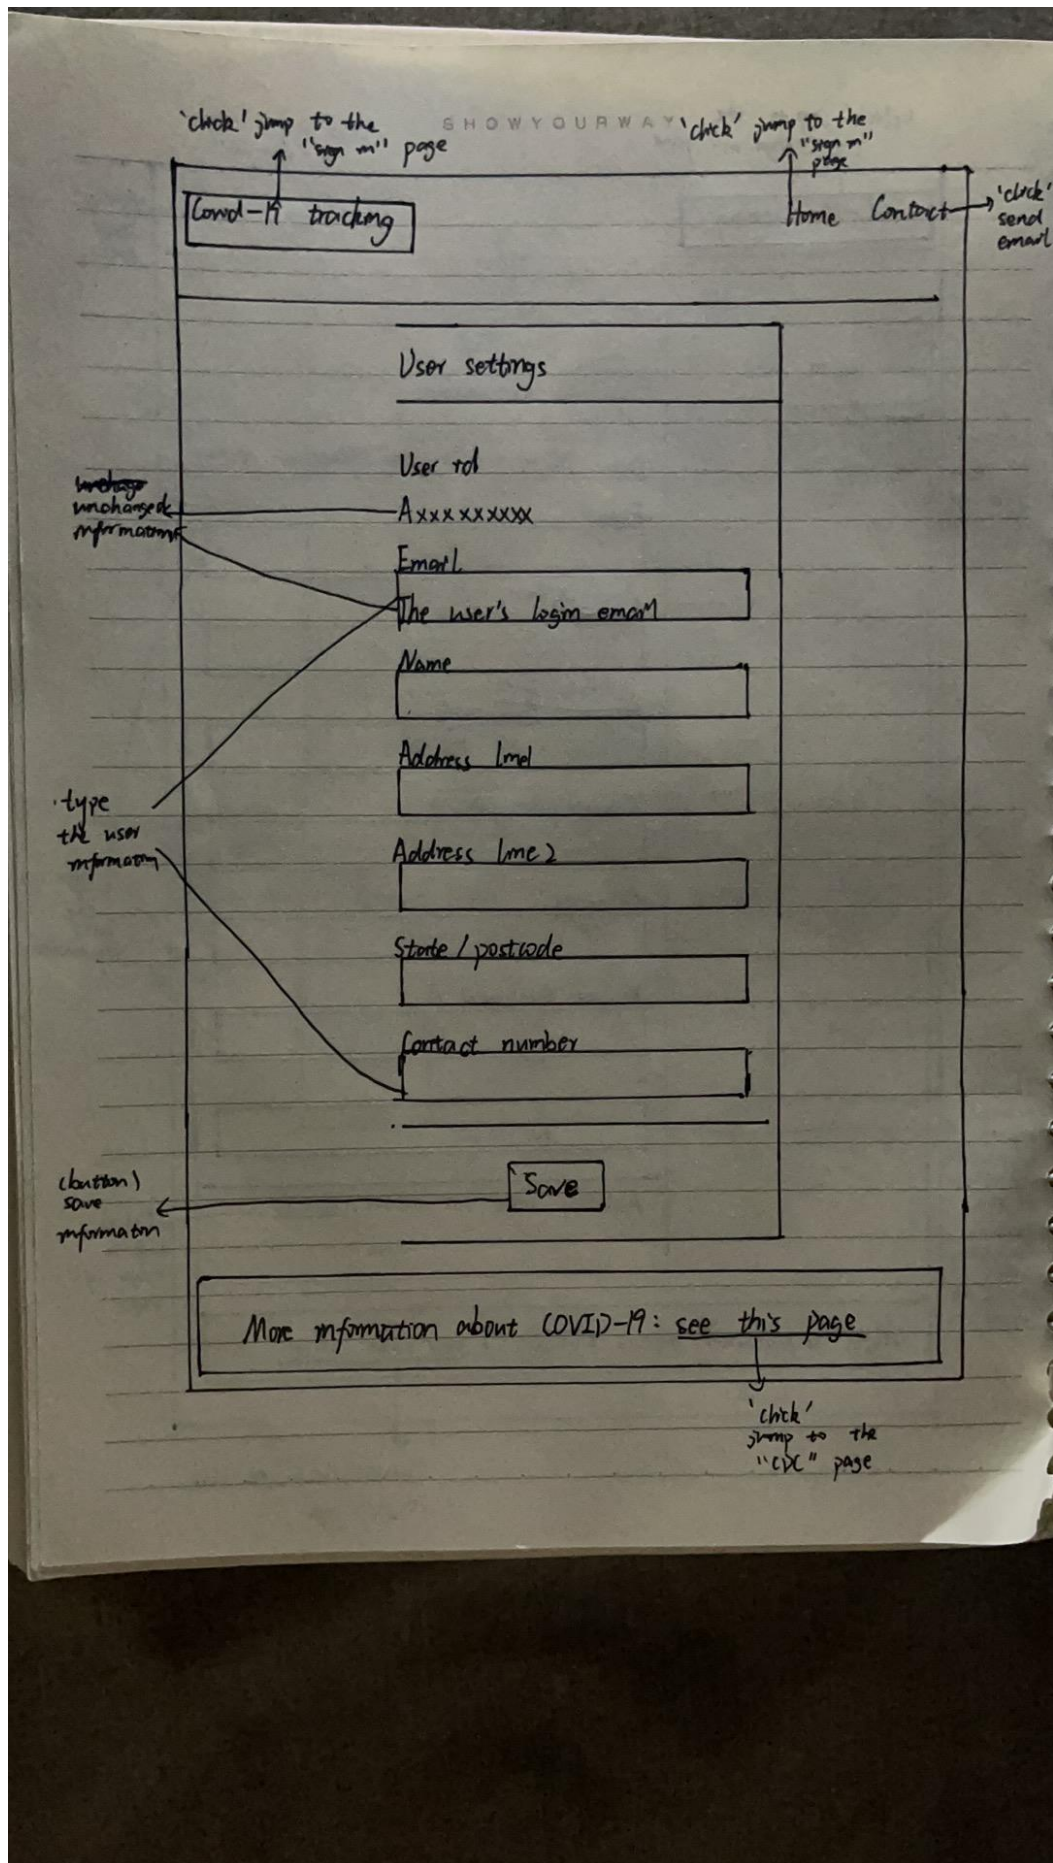 'click' jump to the
"sign in" page
SHOWYOURWAY
'click' jump to the
"sign in"
page
Covid-19 tracking
Home Contact
'click'
send
email
User settings
User id
Axxxxxxxxx
unchanged
information
Email
The user's login email
Name
Address line1
type
the user
information
Address line2
State/postcode
Contact number
(button)
save
information
Save
More information about COVID-19: see this page
'click'
jump to the
"CDC" page